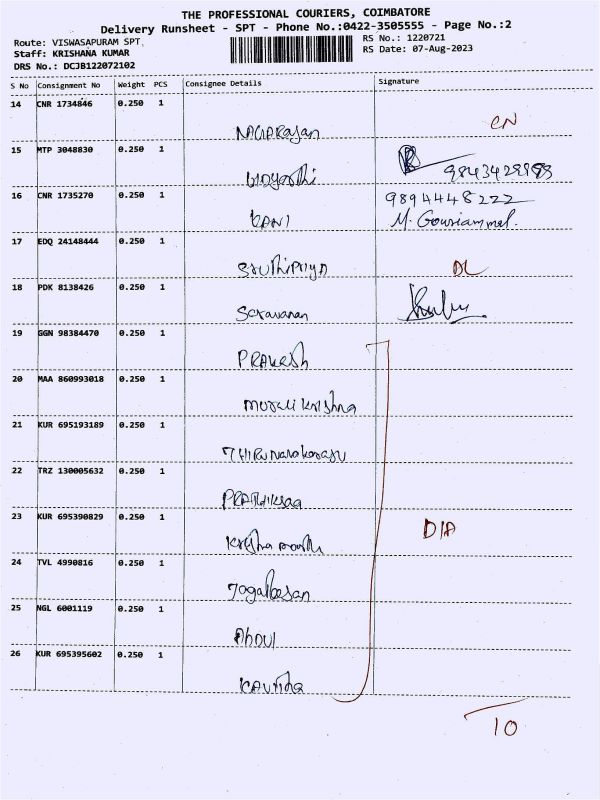 THE PROFESSIONAL COURIERS, COIMBATORE
Delivery Runsheet - SPT - Phone No.:0422-3505555 - Page No.:2
Route: VISWASAPURAM SPT
RS No.: 1220721
Staff: KRISHANA KUMAR
RS Date: 07-Aug-2023
DRS No.: DCJB122072102
S No Consignment No Weight PCS Consignee Details Signature
14 CNR 1734846 0.250 1
NAGARAJAN CN
15 MTP 3048830 0.250 1
16 CNR 1735270 0.250 1 9894448222
RANI M. Gowriammal.
17 EDQ 24148444 0.250 1
SRUTHIPRIYA DL
18 PDK 8138426 0.250 1
Saravanan
19 GGN 98384470 0.250 1
PRAKESh
20 MAA 860993018 0.250 1
MUraliKriShna
21 KUR 695193189 0.250 1
22 TRZ 130005632 0.250 1
23 KUR 695390829 0.250 1
Krishna moorthi D/A
24 TVL 4990816 0.250 1
25 NGL 6001119 0.250 1
AbDUl
26 KUR 695395602 0.250 1
KAVITha
10